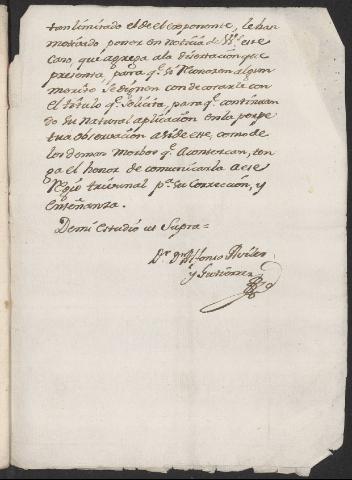 tan limitado el de el exponente, le han
motivado poner en noticia de VSs este
caso, que agrega a la disertación que
presenta, para qe. si reconocen algun
merito se dignen con decorarle con
el titulo qe. solicita, para qe. continuan
do su natural aplicacion en la perpe
tua observacion asi de este, como de
los demas morbos qe. acontezcan, ten
ga el honor de comunicarla a ese
Regio tribunal pa. su correccion, y
enseñanza.
De mi estudio ut supra =
Dr. Dn. Alfonso Aviles
y Gutierrez